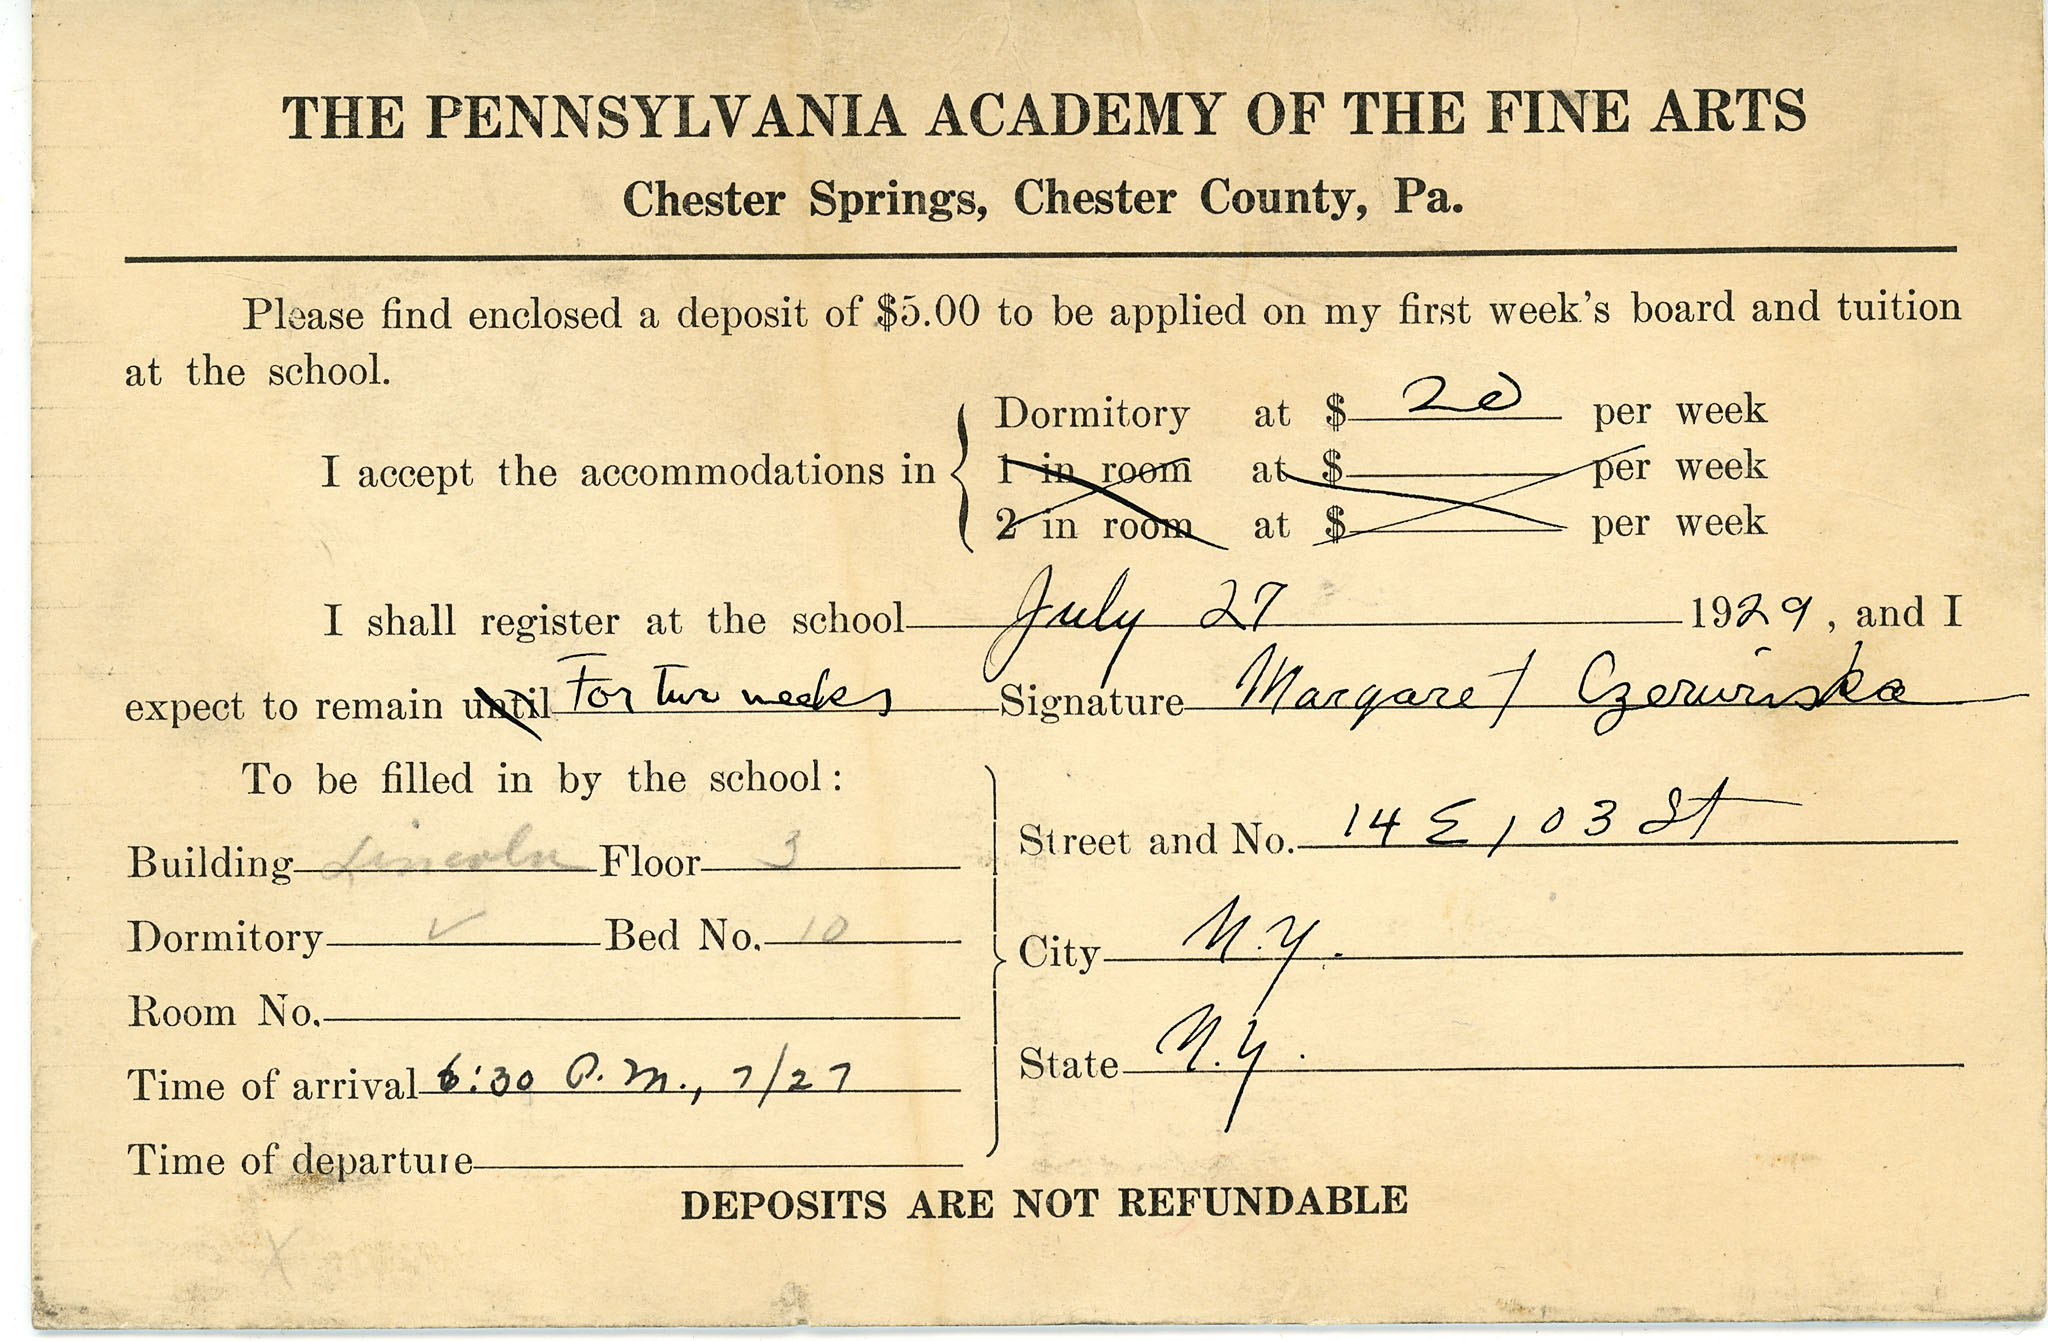 THE PENNSYLVANIA ACADEMY OF THE FINE ARTS
Chester Springs, Chester County, Pa.
Please find enclosed a deposit of $5.00 to be applied on my first week's board and tuition
at the school.
Dormitory at $ 20 per week
I accept the accommodations in 1 in room at $ per week
2 in room at $ per week
I shall register at the school July 27 1929, and I
expect to remain until For two weeks Signature Margaret Czerwinska
To be filled in by the school:
Building Lincoln Floor 3
Dormitory ✓ Bed No. 10
Room No.
Time of arrival 6:30 P.M., 7/27
Time of departure
Street and No. 14 E 103 St
City N.Y.
State N.Y.
DEPOSITS ARE NOT REFUNDABLE